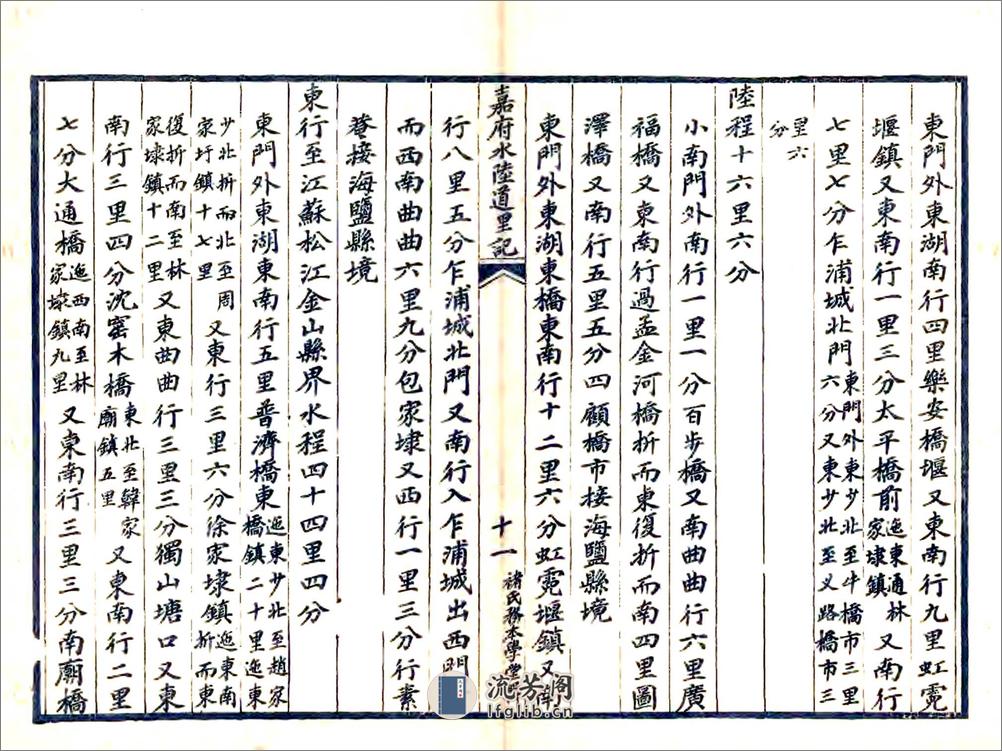 東門外東湖南行四里樂安橋堰又東南行九里虹霓
堰鎮又東南行一里三分太平橋前迤東通林家埭鎮又南行
七里七分乍浦城北門東門外東少北至牛橋市三里六分又東少北至义路橋市三
里六分
陸程十六里六分
小南門外南行一里一分百步橋又南曲曲行六里廣
福橋又東南行過孟金河橋折而東復折而南四里圖
澤橋又南行五里五分四顧橋市接海鹽縣境
東門外東湖東橋東南行十二里六分虹霓堰鎮又南
嘉府水陸道里記
十一
禇氏務本學堂
行八里五分乍浦城北門又南行入乍浦城出西門
而西南曲曲六里九分包家埭又西行一里三分行素
菴接海鹽縣境
東行至江蘇松江金山縣界水程四十四里四分
東門外東湖東南行五里普濟橋東迤東少北至趙家橋鎮二十里迤東
少北折而北至周家圩鎮十七里又東行三里六分徐家埭鎮迤東南折而東
復折而南至林家埭鎮十二里又東曲曲行三里三分獨山塘口又東
南行三里四分沈窰木橋東北至韓家廟鎮五里又東南行二里
七分大通橋迤西南至林家埭鎮九里又東南行三里三分南廟橋
流芳阁
lfglib.cn